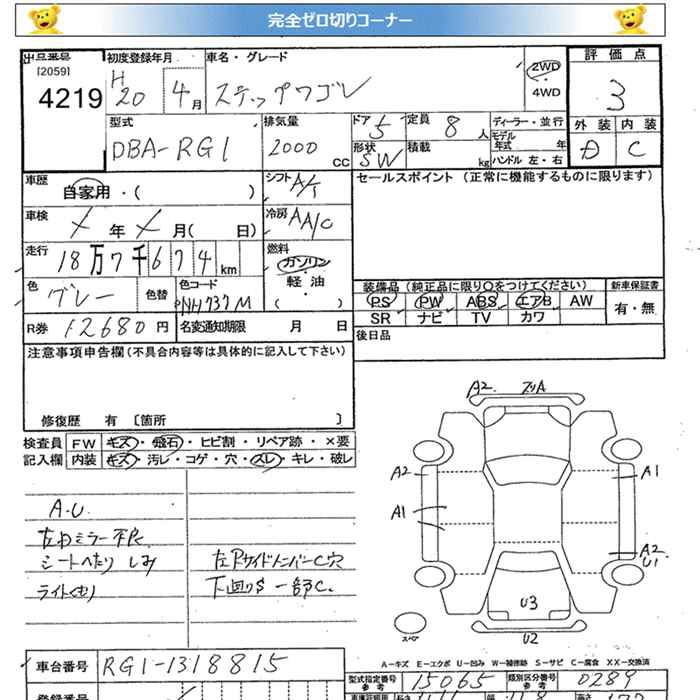 完全ゼロ切りコーナー
出品番号 初度登録年月 車名・グレード 評価点
[2059]
4219
H20 4月 ステップワゴン 2WD
4WD
3
型式 排気量 ドア 定員 ディーラー・並行 外装 内装
DBA-RG1 2000 cc 5 8人 モデル年式 年 D C
形状 積載 ハンドル 左・右
SW kg
車歴 自家用・( ) シフト A/T セールスポイント (正常に機能するものに限ります)
車検 年 月( 日) 冷房 AA/C
走行 18万7千674km 燃料 ガソリン
軽油
( )
色 グレー 色替 色コード NH737M
装備品 (純正品に限り○をつけてください) 新車保証書
PS PW ABS エアB AW 有・無
SR ナビ TV カワ
R券 12680円 名変通知期限 月 日
後日品
注意事項申告欄(不具合内容等は具体的に記入して下さい)
修復歴 有 〔箇所 〕
検査員 FW キズ・飛石・ヒビ割・リペア跡・×要
記入欄 内装 キズ・汚レ・コゲ・穴・スレ・キレ・破レ
A.U
左右ミラー不良
シートへたり しみ
ライトくもり
左Rサイドメンバー C穴
下廻りS 一部C.
A2
A2
A1
A1
A2
U1
U3
U2
スペア
A-キズ E-エクボ U-凹み W-補修跡 S-サビ C-腐食 XX-交換済
車台番号 RG1-1318815
型式指定番号 参考 15065 類別区分番号 参考 0289
登録番号